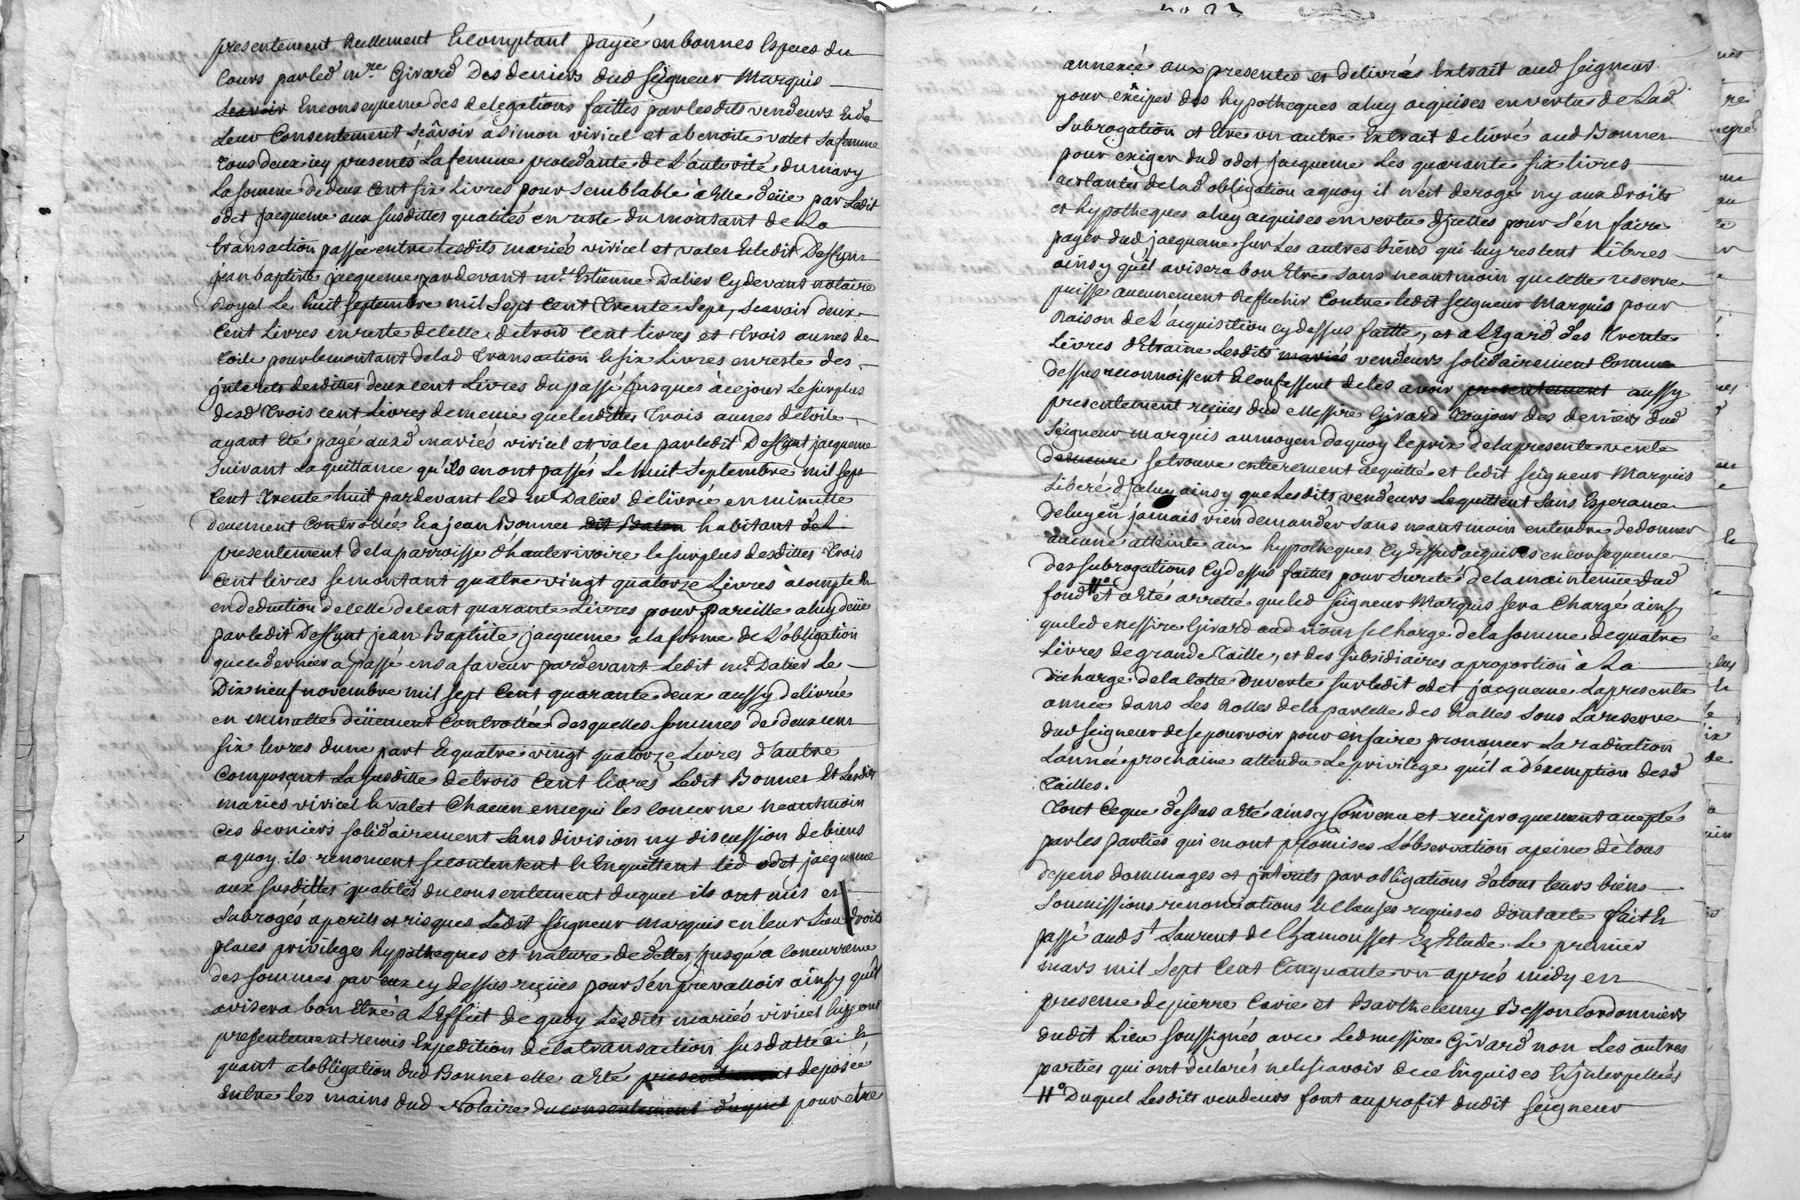 presentement Reellement Et comptant payée en bonnes Especes du
Cours par led mre Girard Des deniers dud seigneur Marquis
Scavoir En consequence des delegations faittes par lesdits vendeurs Et de
Leur Consentement scâvoir a Simon viricel et a benoite valet sa femme
tous deux icy presents La femme procedante de L'autorité du mary
La somme de deux Cent six Livres pour semblable a Elle deüe par Ledit
odet jacqueme aux susdittes qualités en reste du montant de La
transaction passée entre lesdits mariés viricel et valet Et ledit Deffunt
jean baptiste jacqueme pardevant me Estienne Dalier Cy devant notaire
Royal Le huit septembre mil sept Cent trente sept, scavoir deux
Cent Livres en reste de celle de trois Cent livres et trois aunes de
toile pour le montant de lad transaction Et six Livres en reste des
jnterets desdittes deux Cent Livres du passé jusques à ce jour Le surplus
desd trois Cent Livres de meme que lesdittes trois aunes de toile
ayant Eté payé auxd mariés viricel et valet par ledit Deffunt jacquème
suivant La quittance qu'ils en ont passés Le huit septembre mil sept
Cent trente huit pardevant led me Dalier delivrée en minutte
deuement Controllée Et a jean Bonner habitant
presentement de la parroisse d'hauterivoire le surplus desdittes trois
Cent livres se montant quatre vingt quatorze Livres à compte Et
en deduction de celle de Cent quarante Livres pour pareille a luy deüe
par ledit Deffunt jean Baptiste jacqueme a la forme de L'obligation
que ce dernier a passé en sa faveur pardevant Ledit me Dalier Le
Dix neuf novembre mil sept Cent quarante deux aussy delivrée
en minutte deüement Controllée desquelles sommes de deux Cent
six livres d'une part Et quatre vingt quatorze Livres d'autre
Composant La susditte de trois Cent livres Ledit Bonner Et Lesdits
mariés viricel Et valet Chacun en ce qui les Concerne neantmoin
Ces derniers solidairement sans division ny discussion de biens
a quoy ils renoncent se contentent Et Enquittent led odet jacqueme
aux susdittes qualités du consentement duquel ils ont mis et
subrogés a perils et risques Ledit seigneur Marquis en leur Lieu droits
places privileges hypotheques et nature de dettes jusqu'a Concurrence
des sommes par Eux cy dessus reçües pour s'en prevalloir ainsy qu'il
avisera bon Etre à L'Effet de quoy Lesdits mariés viricel luy ont
presentement remis Expedition de la transaction susdattée Et
quant a lobligation dud Bonner elle a Eté deposée
Entre les mains dud Notaire du consentement duquel pour etre
annexée aux presentes et delivrés Extrait aud seigneur
pour exciper des hypotheques a luy acquises en vertu de Lad
subrogation et Etre un autre Extrait delivré aud Bonner
pour exiger dud odet jacqueme Les quarante six livres
restantes de lad obligation a quoy il n'est derogé ny aux droits
et hypotheques a luy acquises en vertu d'jcelles pour s'en faire
payer dud jacqueme sur Les autres biens qui luy restent Libres
ainsy qu'il avisera bon Etre sans neantmoin que cette reserve
puisse aucunement Reflechir Contre ledit seigneur Marquis pour
Raison de L'acquisition cy dessus faitte, et a L'Egard des trente
Livres d'Etraine Lesdits mariés vendeurs solidairement Comme
dessus reconnoissent Et confessent de les avoir presentement aussy
presentement reçües dud Messire Girard toujour des deniers dud
seigneur marquis au moyen de quoy le prix de la presente vente
demeure se trouve entierement acquitté et ledit seigneur Marquis
Liberé d'jceluy ainsy que Lesdits vendeurs Le quittent sans Esperance
de luy en jamais rien demander sans neantmoin entendre de donner
aucune atteinte aux hypotheques Cy dessus acquises en consequence
des subrogations Cy dessus faittes pour sureté de la maintenüe dud
fond # et a Eté arreté que led seigneur Marquis sera Chargé ainsy
que led messire Girard aud nom se Charge de la somme de quatre
Livres de grande taille, et des subsidiaires a proportion à La
décharge de la Cotte ouverte sur ledit odet jacqueme La presente
année dans Les Rolles de la parcelle des Halles sous La reserve
dud seigneur de se pourvoir pour en faire prononcer La radiation
L'année prochaine attendu Le privilege qu'il a d'exemption desd
tailles.
tout Ce que dessus a Eté ainsy Convenu et reciproquement accepté
par les parties qui en ont promises L'observation a peine de tous
depens dommages et jnterets par obligations de tous leurs biens
soumissions renonciations Et Clauses requises dont acte fait Et
passé aud St Laurent de Chamousset Ez Etude Le premier
mars mil sept Cent Cinquante un aprés midy en
presence de pierre Carie et Barthelemy Besson Cordonniers
dudit Lieu soussignés avec Led messire Girard non Les autres
parties qui ont declarés ne le scavoir de ce Enquises Et jnterpellées
# Duquel Lesdits vendeurs font au profit dudit seigneur